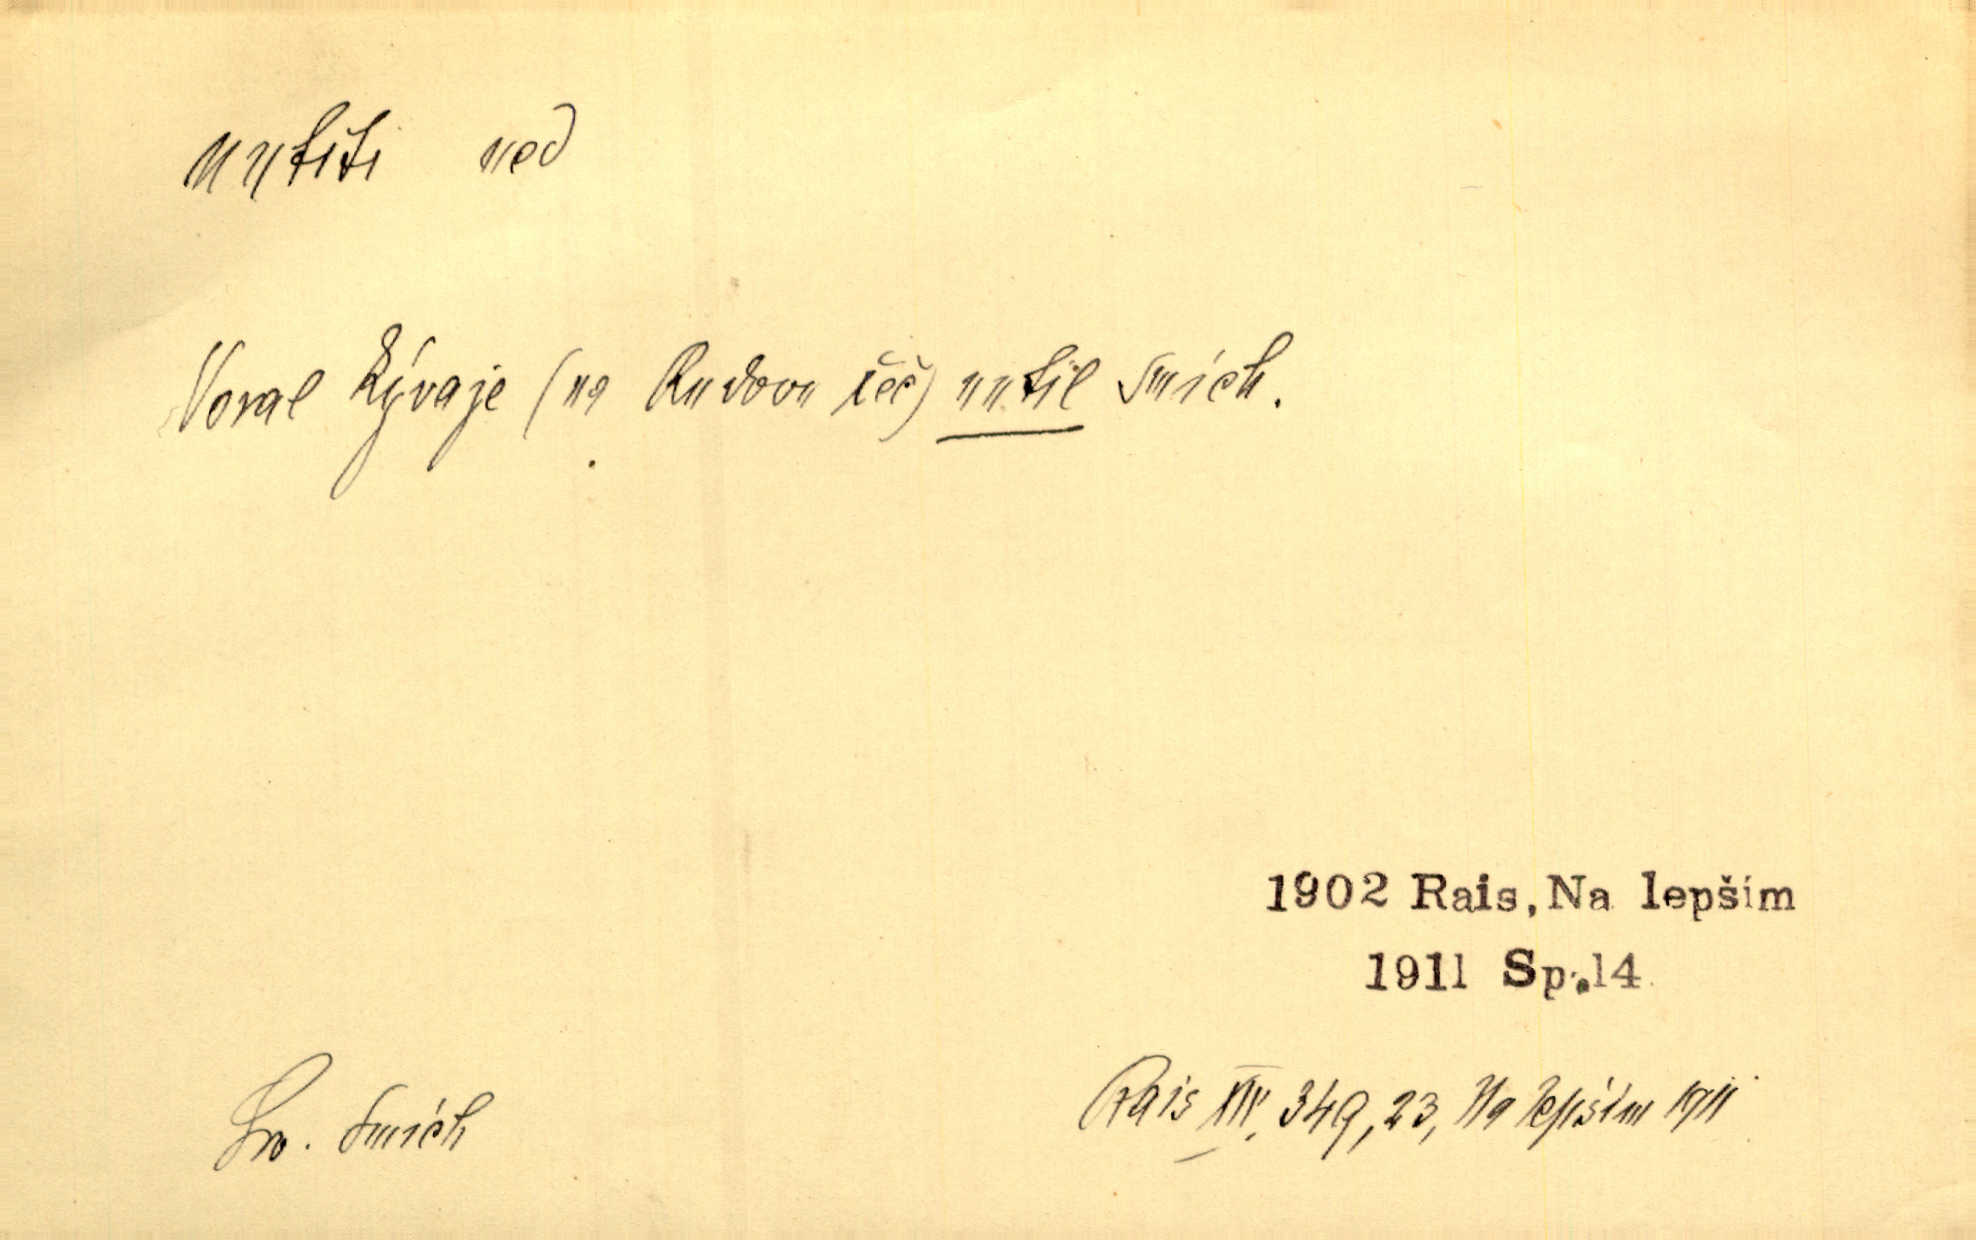 nutiti ned
Voral kývaje (na Rudovu řeč) nutil smích.
1902 Rais, Na lepším
1911 Sp. 14
Sv. smích
Rais XIV, 349, 23, Na lepším 1911